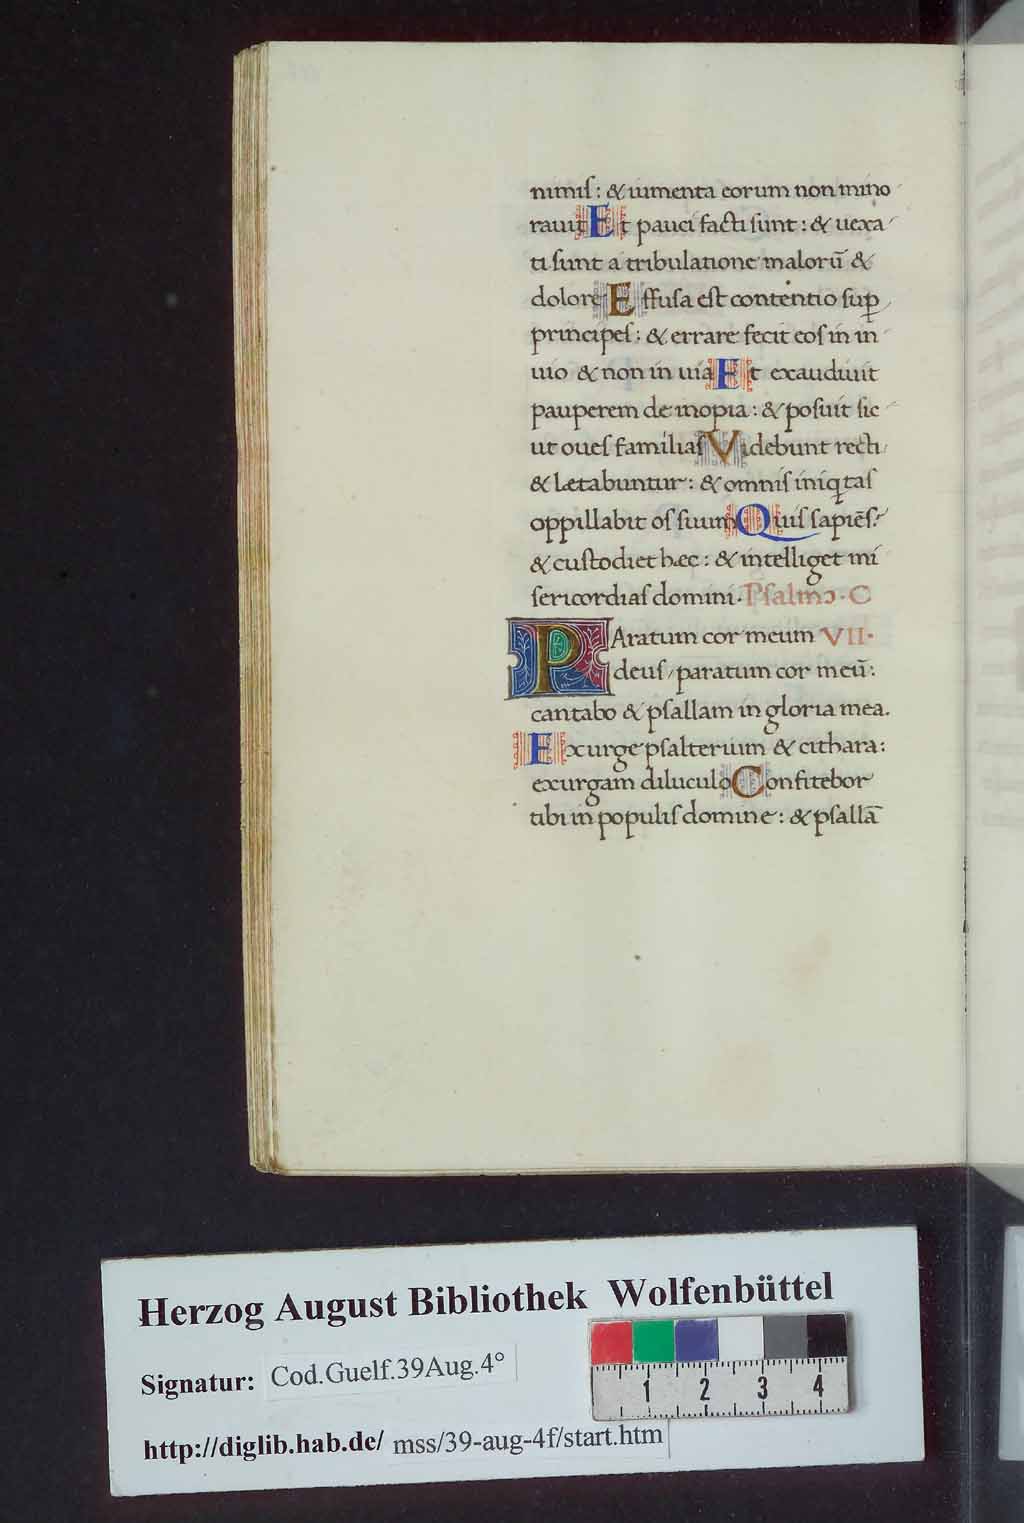 nimiſ: & iumenta eorum non mino
rauit Et pauci facti ſunt: & uexa
ti ſunt a tribulatione malorū &
dolore Effuſa eſt contentio ſuꝑ
principeſ: & errare fecit eoſ in in
uio & non in uia Et exaudiuit
pauperem de inopia: & poſuit ſic
ut oueſ familiaſ Videbunt recti
& lętabuntur: & omniſ iniq̇taſ
oppillabit oſ ſuum Quiſ ſapiēſ?
& cuſtodiet hęc: & intelliget mi
ſericordiaſ domini. Pſalmꝰ. C
PAratum cor meum VII.
deuſ / paratum cor meū:
cantabo & pſallam in gloria mea.
Exurge pſalterium & cithara:
exurgam diluculo Confitebor
tibi in populiſ domine: & pſallā
Herzog August Bibliothek Wolfenbüttel
Signatur: Cod.Guelf.39Aug.4°
http://diglib.hab.de/ mss/39-aug-4f/start.htm
1 2 3 4